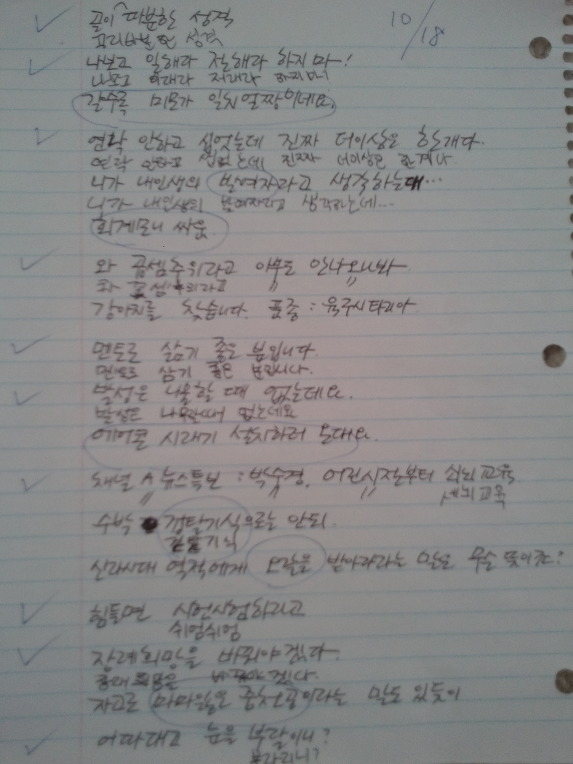 골이 따분한 성격
고리타분한 성격
10/18
나보고 일해라 절해라 하지마!
나보고 이래라 저래라 하지마
갈수록 미모가 일치얼짱이네요.
연락 안하고 싶었는데 진짜 더이상은 한개다.
연락 안하고 싶었는데 진짜 더이상은 한계다
니가 내인생의 발여자라고 생각하는데...
니가 내인생의 반여자라고 생각하는데...
회계모니 싸움
와 곱셈추위라고 아무도 안나오나봐
와 꽃샘추위라고
강아지를 찾습니다. 품종: 육구시타리아
멘토로 삼기 좋은 분입니다.
멘토로 삼기 좋은 분입니다.
발성은 나올할 때 없는데요.
발성은 나무랄데 없는데요
에어콘 시래기 설치하러 온대요.
채널A 뉴스특보: 박수경, 어린시절부터 쇠뇌교육
세뇌교육
수박 겉탈기식으로는 안되.
겉핥기식
신라시대 역적에게 오랄을 받아라라는 말은 무슨 뜻이죠?
힘들면 시험시험하라고
쉬엄쉬엄
장례희망을 바꿔야겠다.
장래희망을 바꿔야겠다.
자고로 마마잃은 중천공이라는 말도 있듯이
어따대고 눈을 부랄이니?
부라리니?